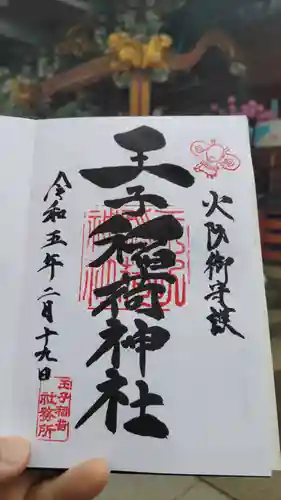 火防御守護
王子稲荷神社
令和五年二月十九日
王子稲荷
社務所